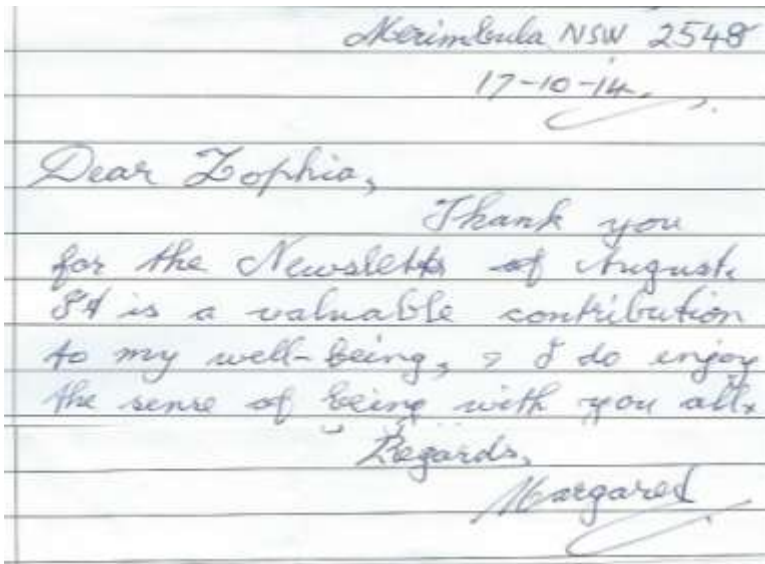 Merimbula NSW 2548
17-10-14.
Dear Zophia,
Thank you
for the Newsletter of August.
It is a valuable contribution
to my well-being, & I do enjoy
the sense of being with you all.
Regards,
Margaret